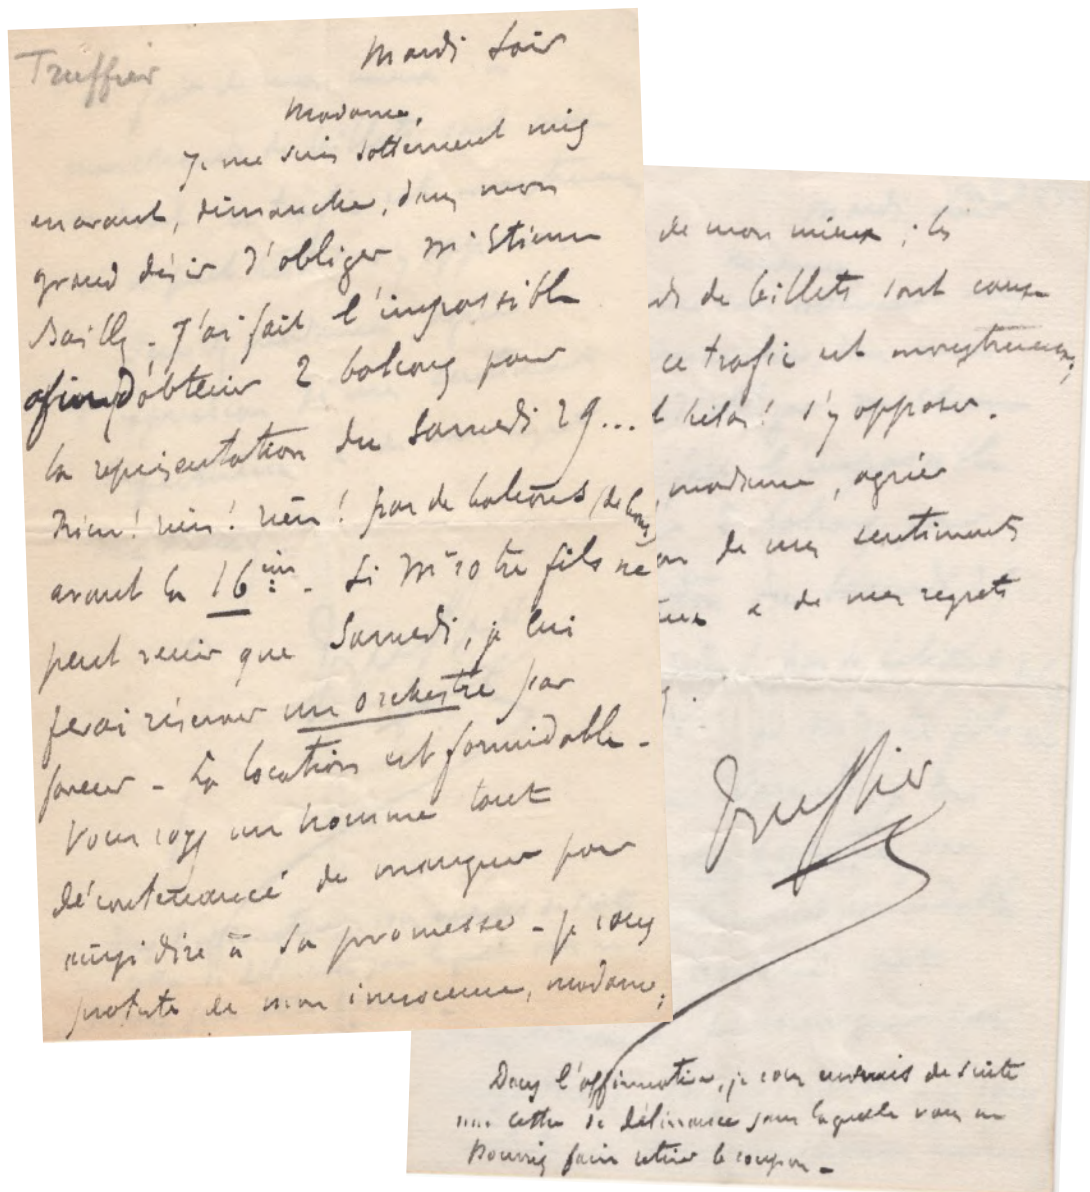 Truffier
Mardi soir
Madame,
Je me suis sottement mis
en avant, dimanche, dans mon
grand désir d'obliger Mr Etienne
Bailly - J'ai fait l'impossible
afin d'obtenir 2 balcons pour
la représentation du Samedi 29...
Rien! rien! rien! pas de balcons (de loue)
avant la 16ème - Si Mr votre fils ne
peut venir que Samedi, je lui
ferai réserver un orchestre par
faveur - La location est formidable -
Vous voyez un homme tout
décontenancé de manquer pour
ainsi dire à sa promesse - je vous
proteste de mon innocence, madame;
de mon mieux ; les
ds de billets sont cause
ce trafic est monstrueux;
hélas! s'y opposer.
, madame, agréer
de mes sentiments
& de mes regrets
Truffier
Dans l'affirmative, je vous enverrais de suite
une lettre de délivrance sans laquelle vous ne
pourriez faire retirer le coupon -